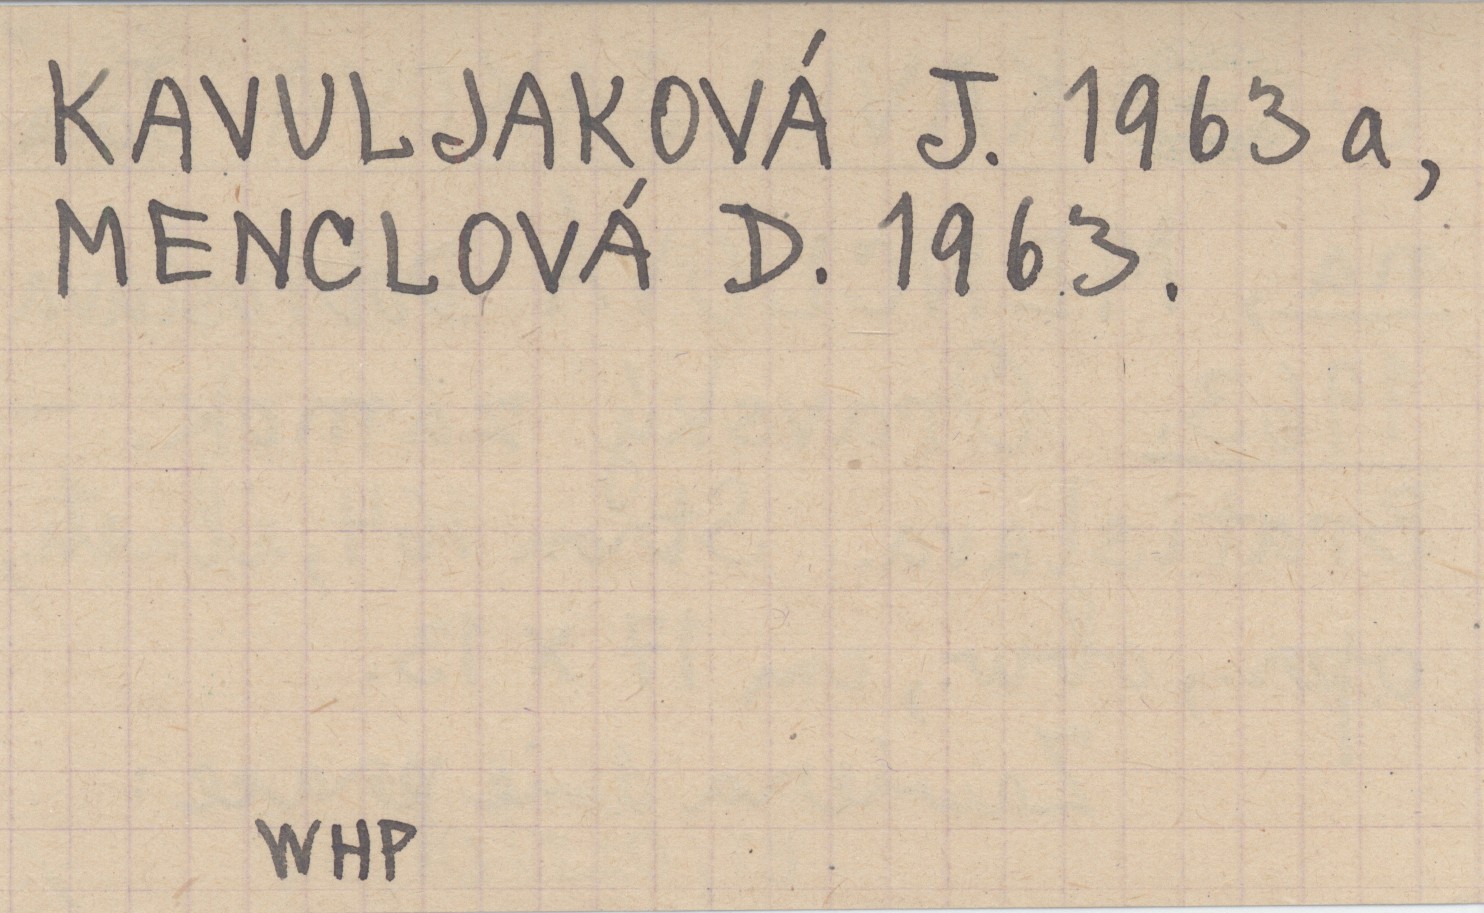 KAVULJAKOVÁ J. 1963a,
MENCLOVÁ D. 1963.
WHP